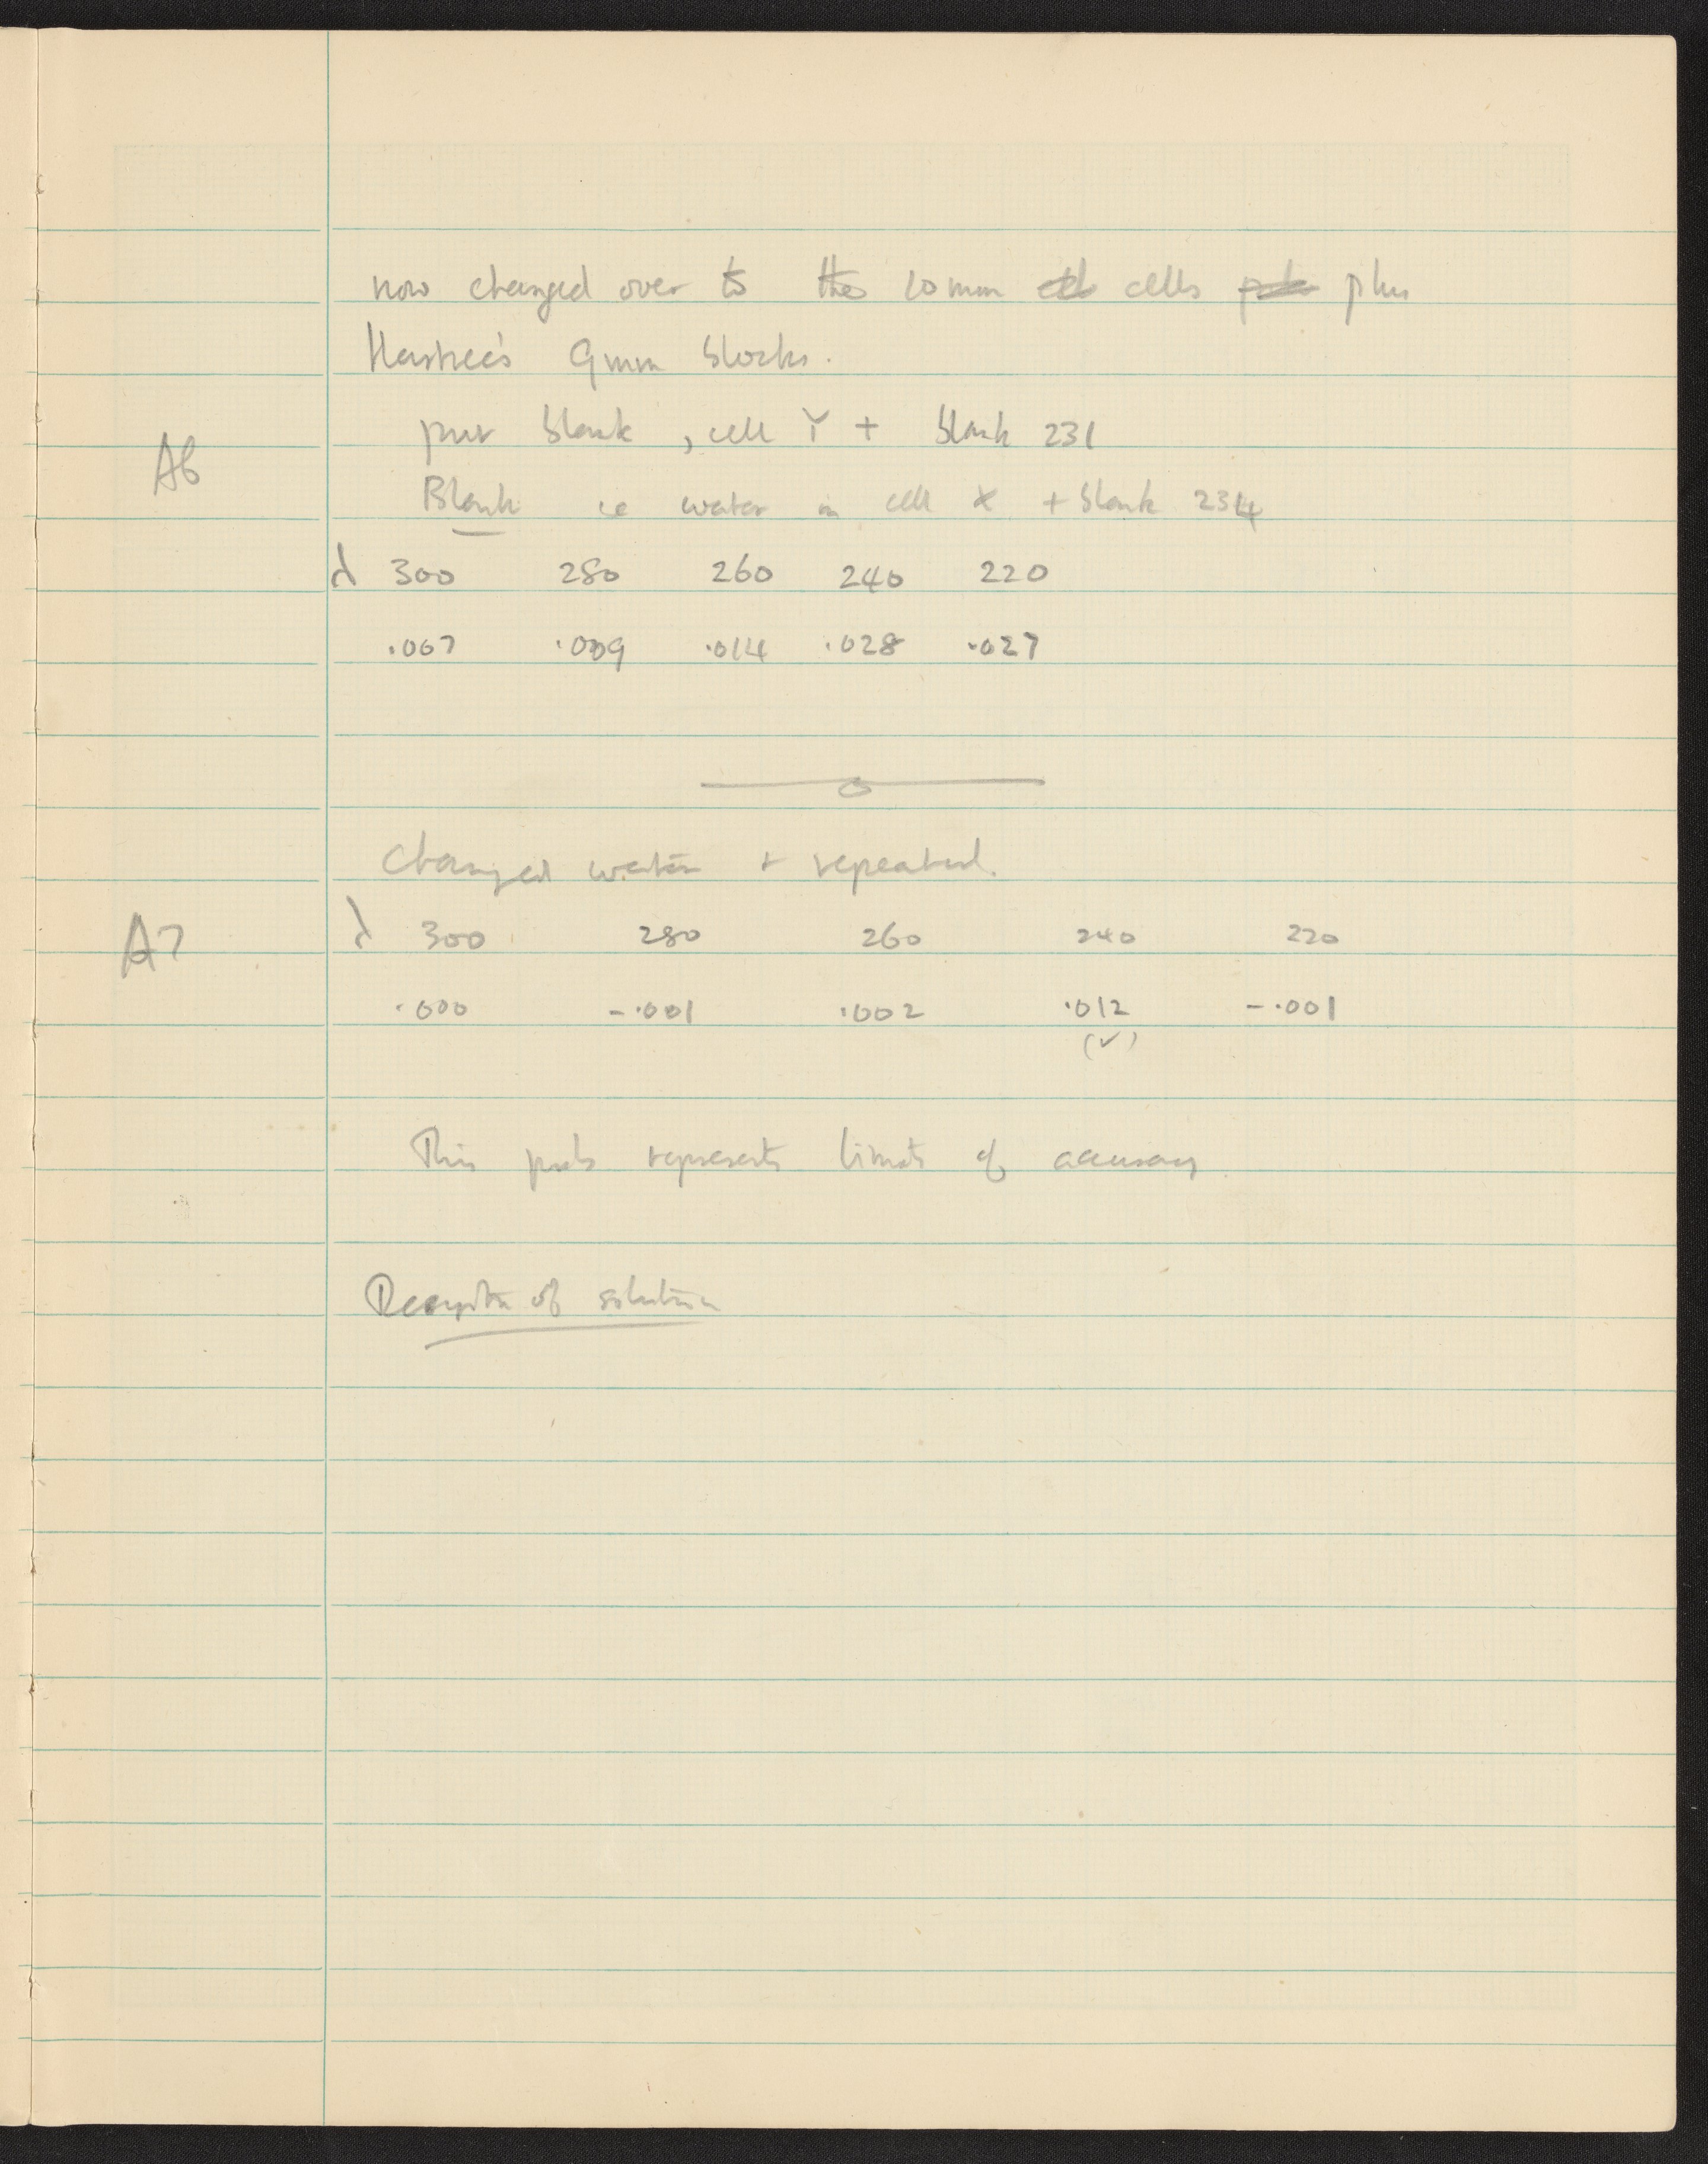 now changed over to the 10 mm cells plus
9mm blocks.
A6
blank, cell Y + blank 231
Blank ie water in cell X + blank 234
λ 300 280 260 240 220
.007 .009 .014 .028 .027
Changed water + repeated.
A7
λ 300 280 260 240 220
.000 -.001 .002 .012 -.001
(✓)
This prob represents limits of accuracy
Descriptn of solution